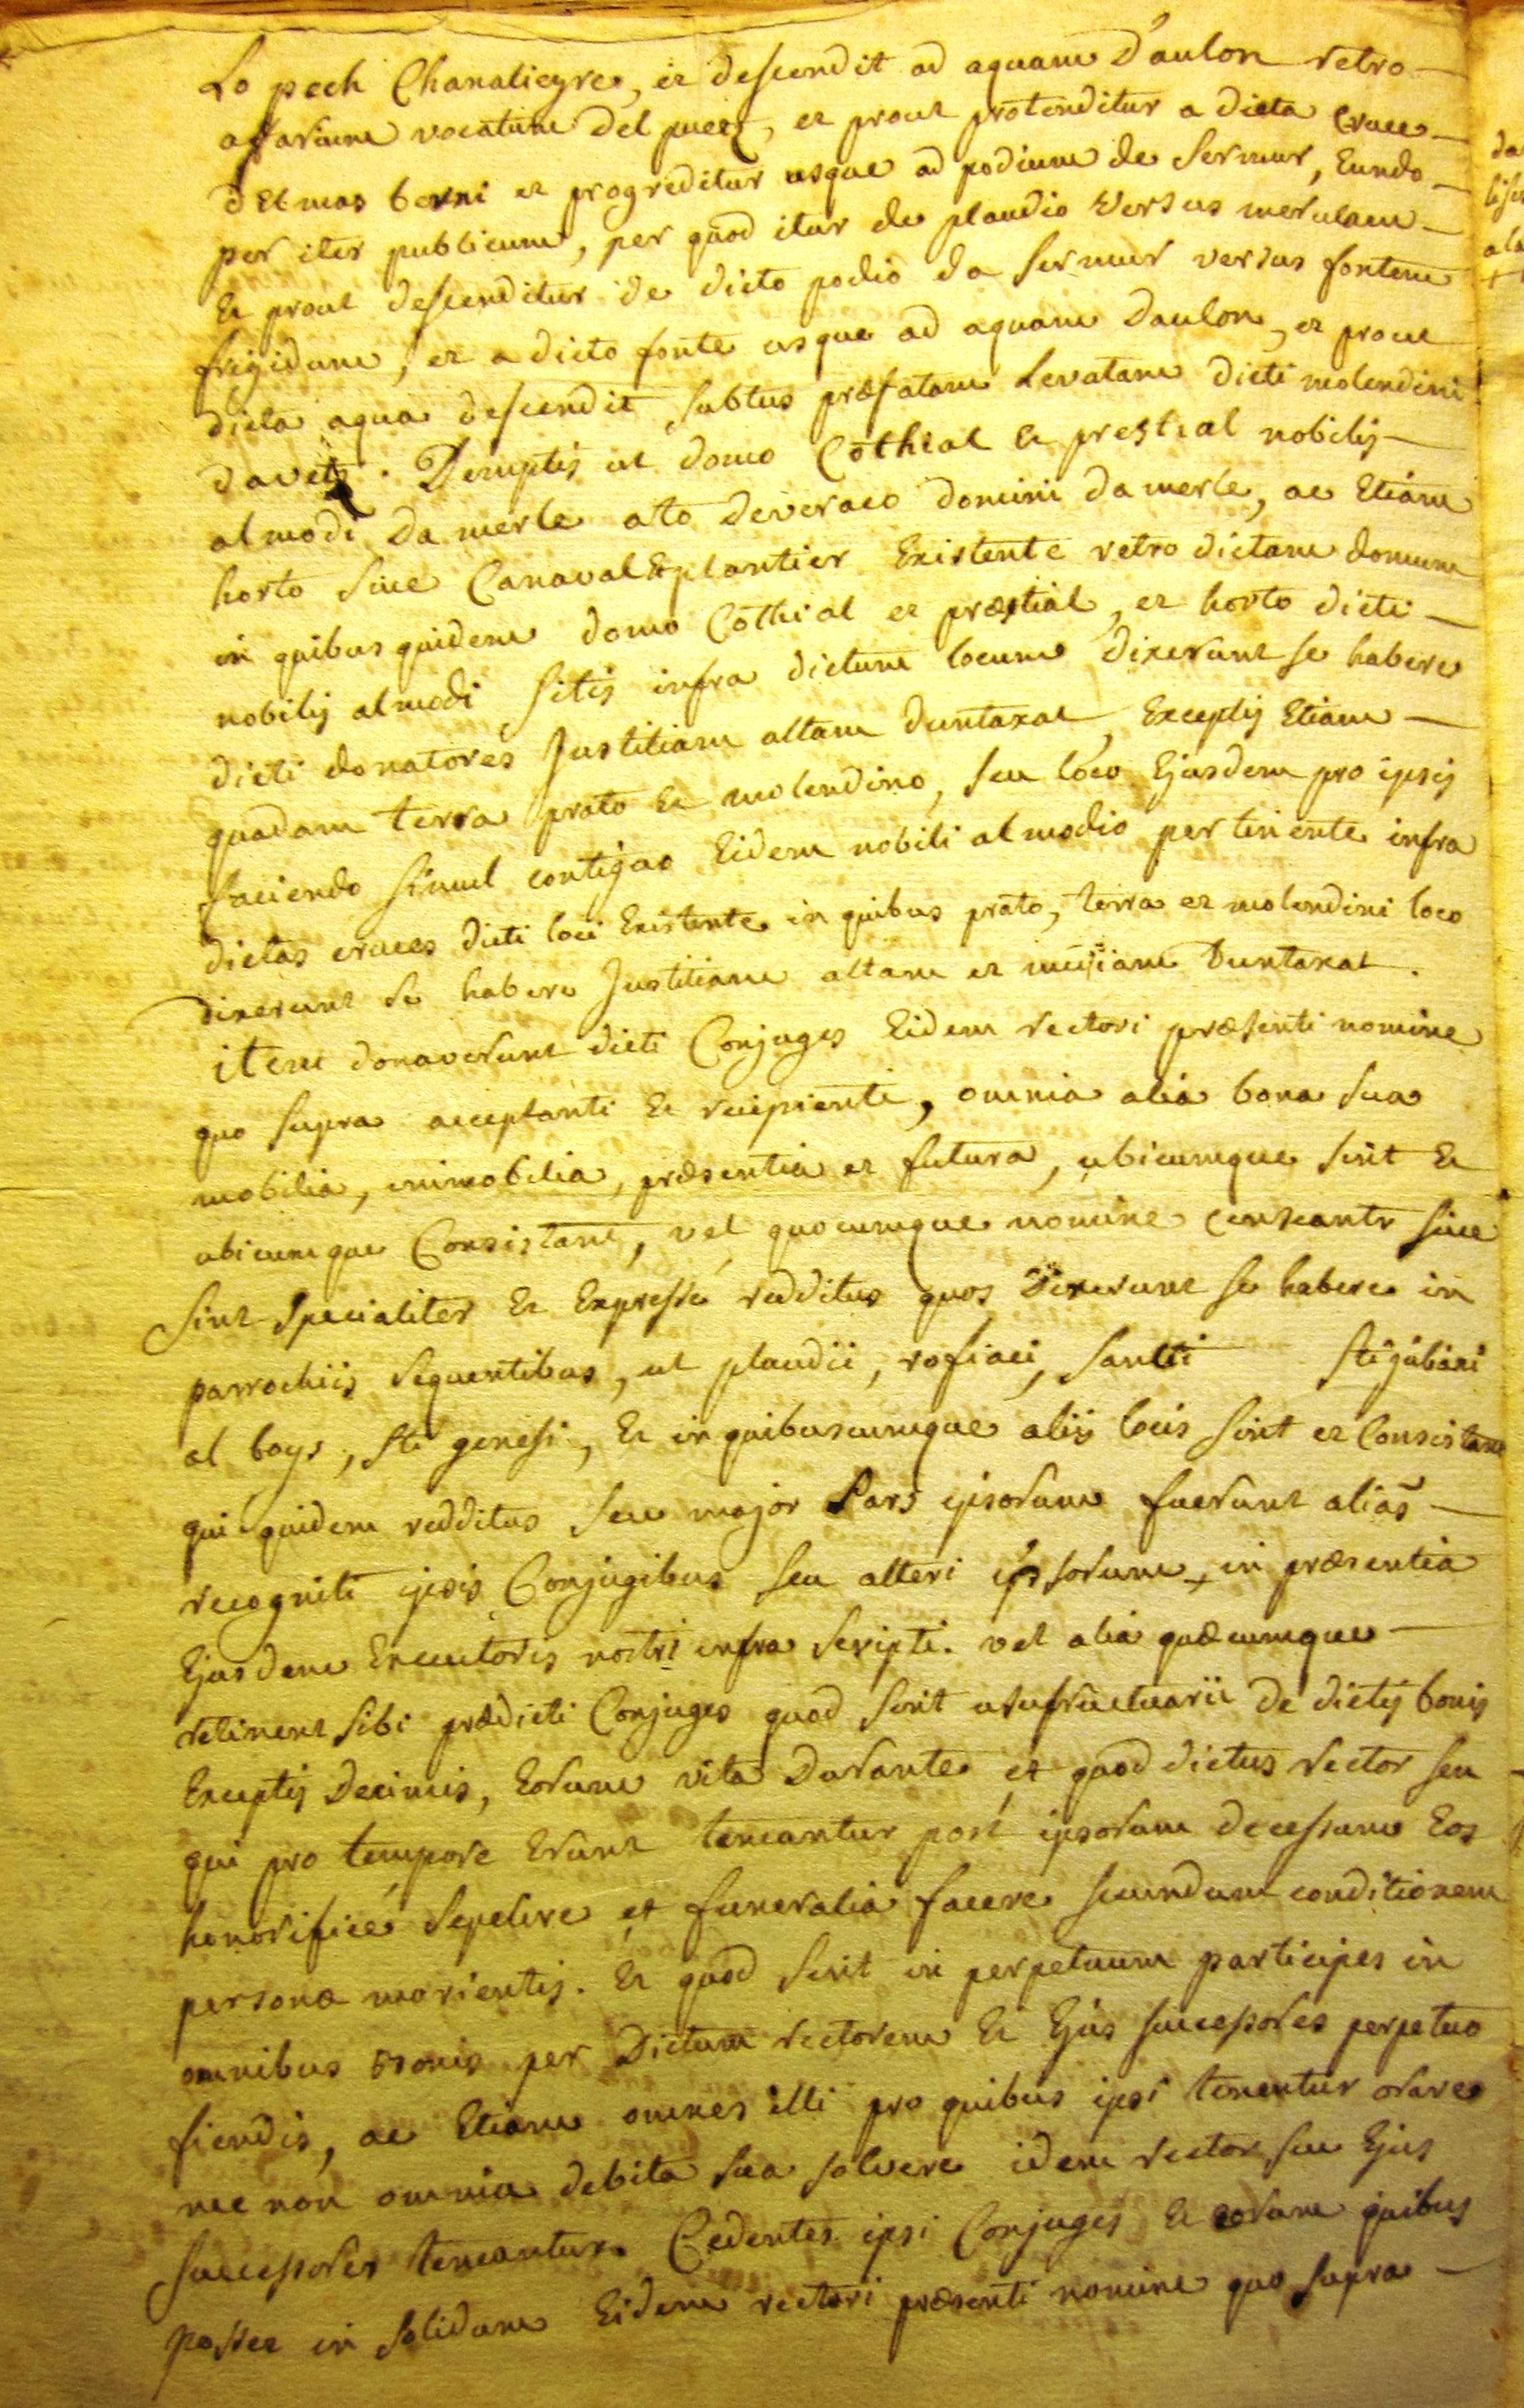 Lo pech Chanalieyre, et descendit ad aquam D'aulon retro
affarium vocatum del puetz, et prout protenditur a dicta cruce
del mas berni et progreditur usque ad podium de Sermur, Eundo
per iter publicum, per quod itur de plaudio versus merulam
Et prout descenditur de dicto podio da Sermur versus fontem
frigidum, et a dicto fonte usque ad aquam Daulon, et prout
dicta aqua descendit subtus præfatam Levatam dicti molendini
davetz. Demptis ut domo Cothial Et prestial nobilis
almodi Da merle ato deveraco domini da merle, ac Etiam
horto sive Canaval Et plantier Existente retro dictam domum
in quibus quidem domo Cothial et præstial, et horto dicti
nobilis almodi sitis infra dictum locum dixerunt se habere
dicti donatores Justitiam altam duntaxat, Exceptis Etiam
quadam terra prato Et molendino, seu loco Ejusdem pro ipsis
faciendo simul contiguo Eidem nobili almodio pertinente infra
dictas cruces dicti loci Existente in quibus prato, terra et molendini loco
dixerunt se habere Justitiam altam et mediam Duntaxat.
item donaverunt dicti Conjuges Eidem rectori præsenti nomine
quo supra acceptanti Et recipienti, omnia alia bona sua
mobilia, immobilia, præsentia et futura, ubicumque sint Et
ubicumque Consistant, vel quocumque nomine censeantr sive
sint specialiter Et Expressé redditus quos Dixerunt se habere in
parrochiis sequentibus, ut plaudii, rofiaci, Sancti Stijuliani
al boys, Sti genesi, Et in quibuscumque aliis locis sint et Consistant
qui quidem redditus seu major Pars ipsorum fuerunt alias
recogniti ipsis Conjugibus seu alteri ipsorum, in præsentia
Ejusdem Executoris nostri infra scripti. vel alia quæcumque
retinent sibi prædicti Conjuges quod sint usufructuarii De dictis bonis
Exceptis Decimis, Eorum vita Durante, et quod dictus rector seu
qui pro tempore Erunt teneantur post ipsorum Decessum Eos
honorificé sepelire et funeralia facere secundum conditionem
personæ morientis. Et quod sint in perpetuum participes in
omnibus bonis per Dictum rectorem Et Ejus successores perpetuo
fiendis, ac Etiam omnes illi pro quibus ipsi tenentur orare
nec non omnia debita sua solvere idem rector seu Ejus
successores teneantur. Cedentes ipsi Conjuges Et eorum quibus
posset in solidum Eidem rectori præsenti nomine quo supra